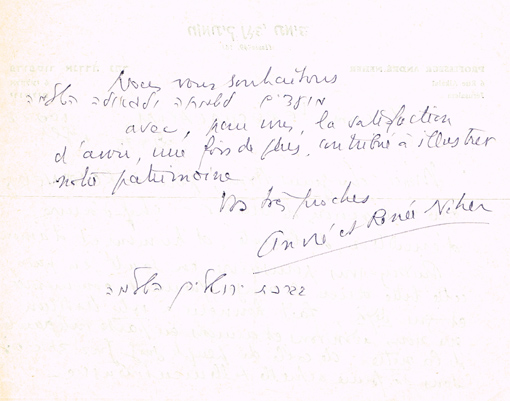 Nous vous souhaitons
מועדים לשמחה ולגאולה השלמה
avec, pour nous, la satisfaction
d'avoir, une fois de plus, contribué à illustrer
notre patrimoine.
Vos très proches
André et Renée Neher
בברכת ירושלים השלמה